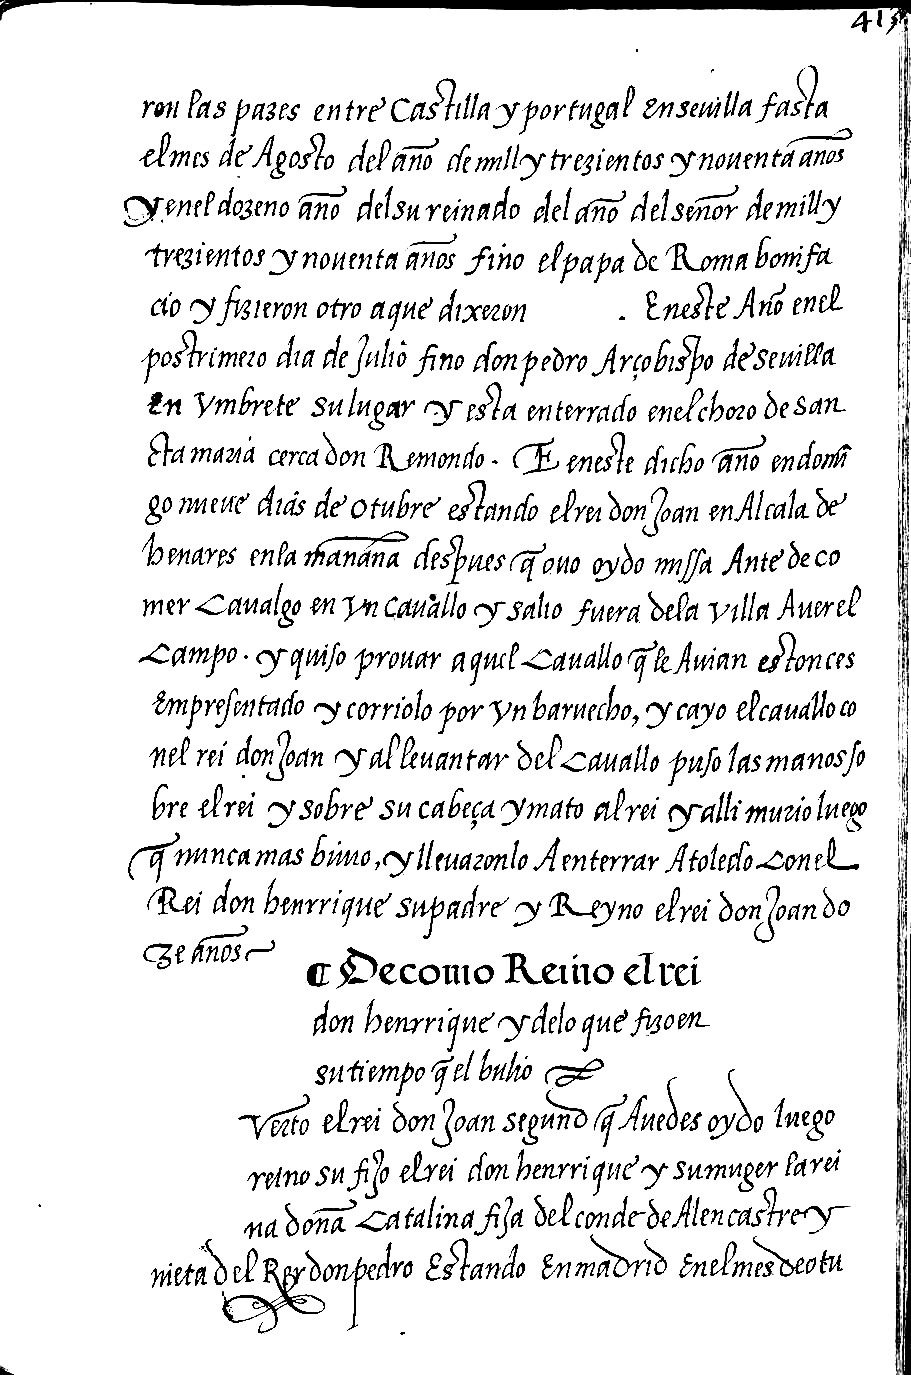 413
ron las pazes entre Castilla y portugal En sevilla fasta
el mes de Agosto del año de mill y trezientos y noventa años
y en el dozeno año del su reinado del año del señor de mill y
trezientos y noventa años fino el papa de Roma bonifa
cio y fizieron otro a que dixeron . En este Año en el
postrimero dia de Julio fino don pedro Arçobispo de sevilla
En Vmbrete su lugar y esta enterrado en el choro de san
cta maria cerca don Remondo . E en este dicho año en domī
go nueve dias de Otubre estando el rei don Joan en Alcala de
henares en la mañana despues q̄ ovo oydo missa Ante de co
mer Cavalgo en Vn cavallo y salio fuera de la Villa A ver el
Campo . y quiso provar aquel Cavallo q̄ le Avian estonces
Empresentado y corriolo por Vn barvecho, y cayo el cavallo co
nel rei don Joan y al levantar del Cavallo puso las manos so
bre el rei y sobre su cabeça y mato al rei y alli murio luego
q̄ nunca mas bivio, y llevaronlo A enterrar A toledo Con el
Rei don henrrique su padre y Reyno el rei don Joan do
ze años
¶ De como Reino el rei
don henrrique y de lo que fizo en
su tiempo q̄ el bulio
Verto el rei don Joan segund q̄ Avedes oydo luego
reino su fijo el rei don henrrique y su muger la rei
na doña Catalina fija del conde de Alencastre y
nieta del Rey don pedro Estando En madrid En el mes de otu